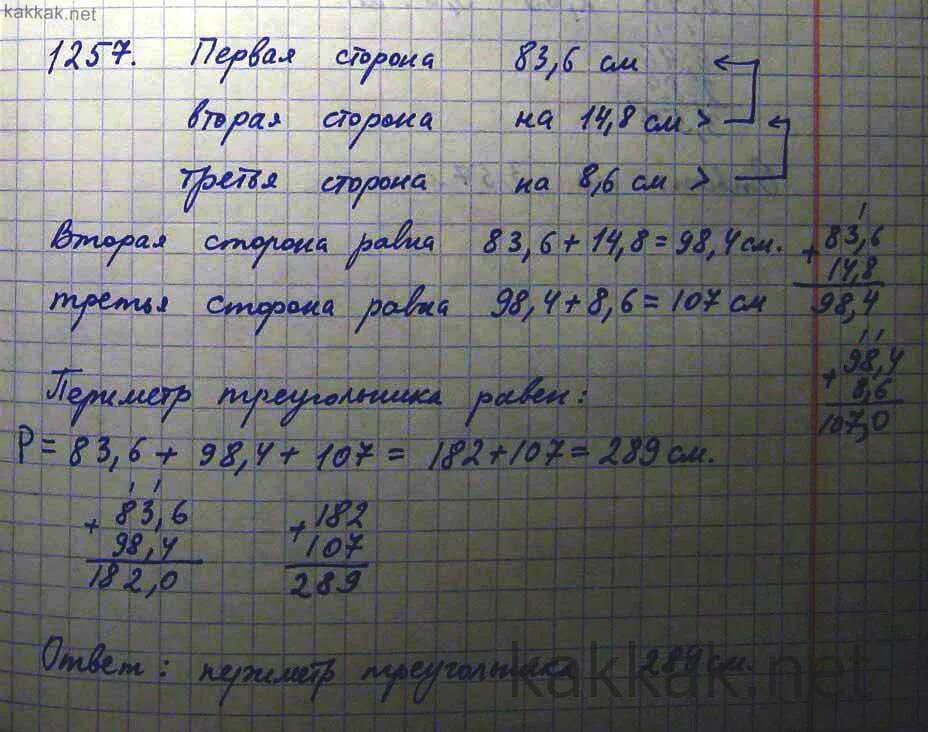 kakkak.net
1257. Первая сторона 83,6 см
вторая сторона на 14,8 см >
третья сторона на 8,6 см >
Вторая сторона равна 83,6 + 14,8 = 98,4 см.
третья сторона равна 98,4 + 8,6 = 107 см
1
+ 83,6
14,8
98,4
1 1
+ 98,4
8,6
107,0
Периметр треугольника равен:
P = 83,6 + 98,4 + 107 = 182 + 107 = 289 см.
1 1
+ 83,6
98,4
182,0
+ 182
107
289
Ответ: периметр треугольника 289 см.
kakkak.net